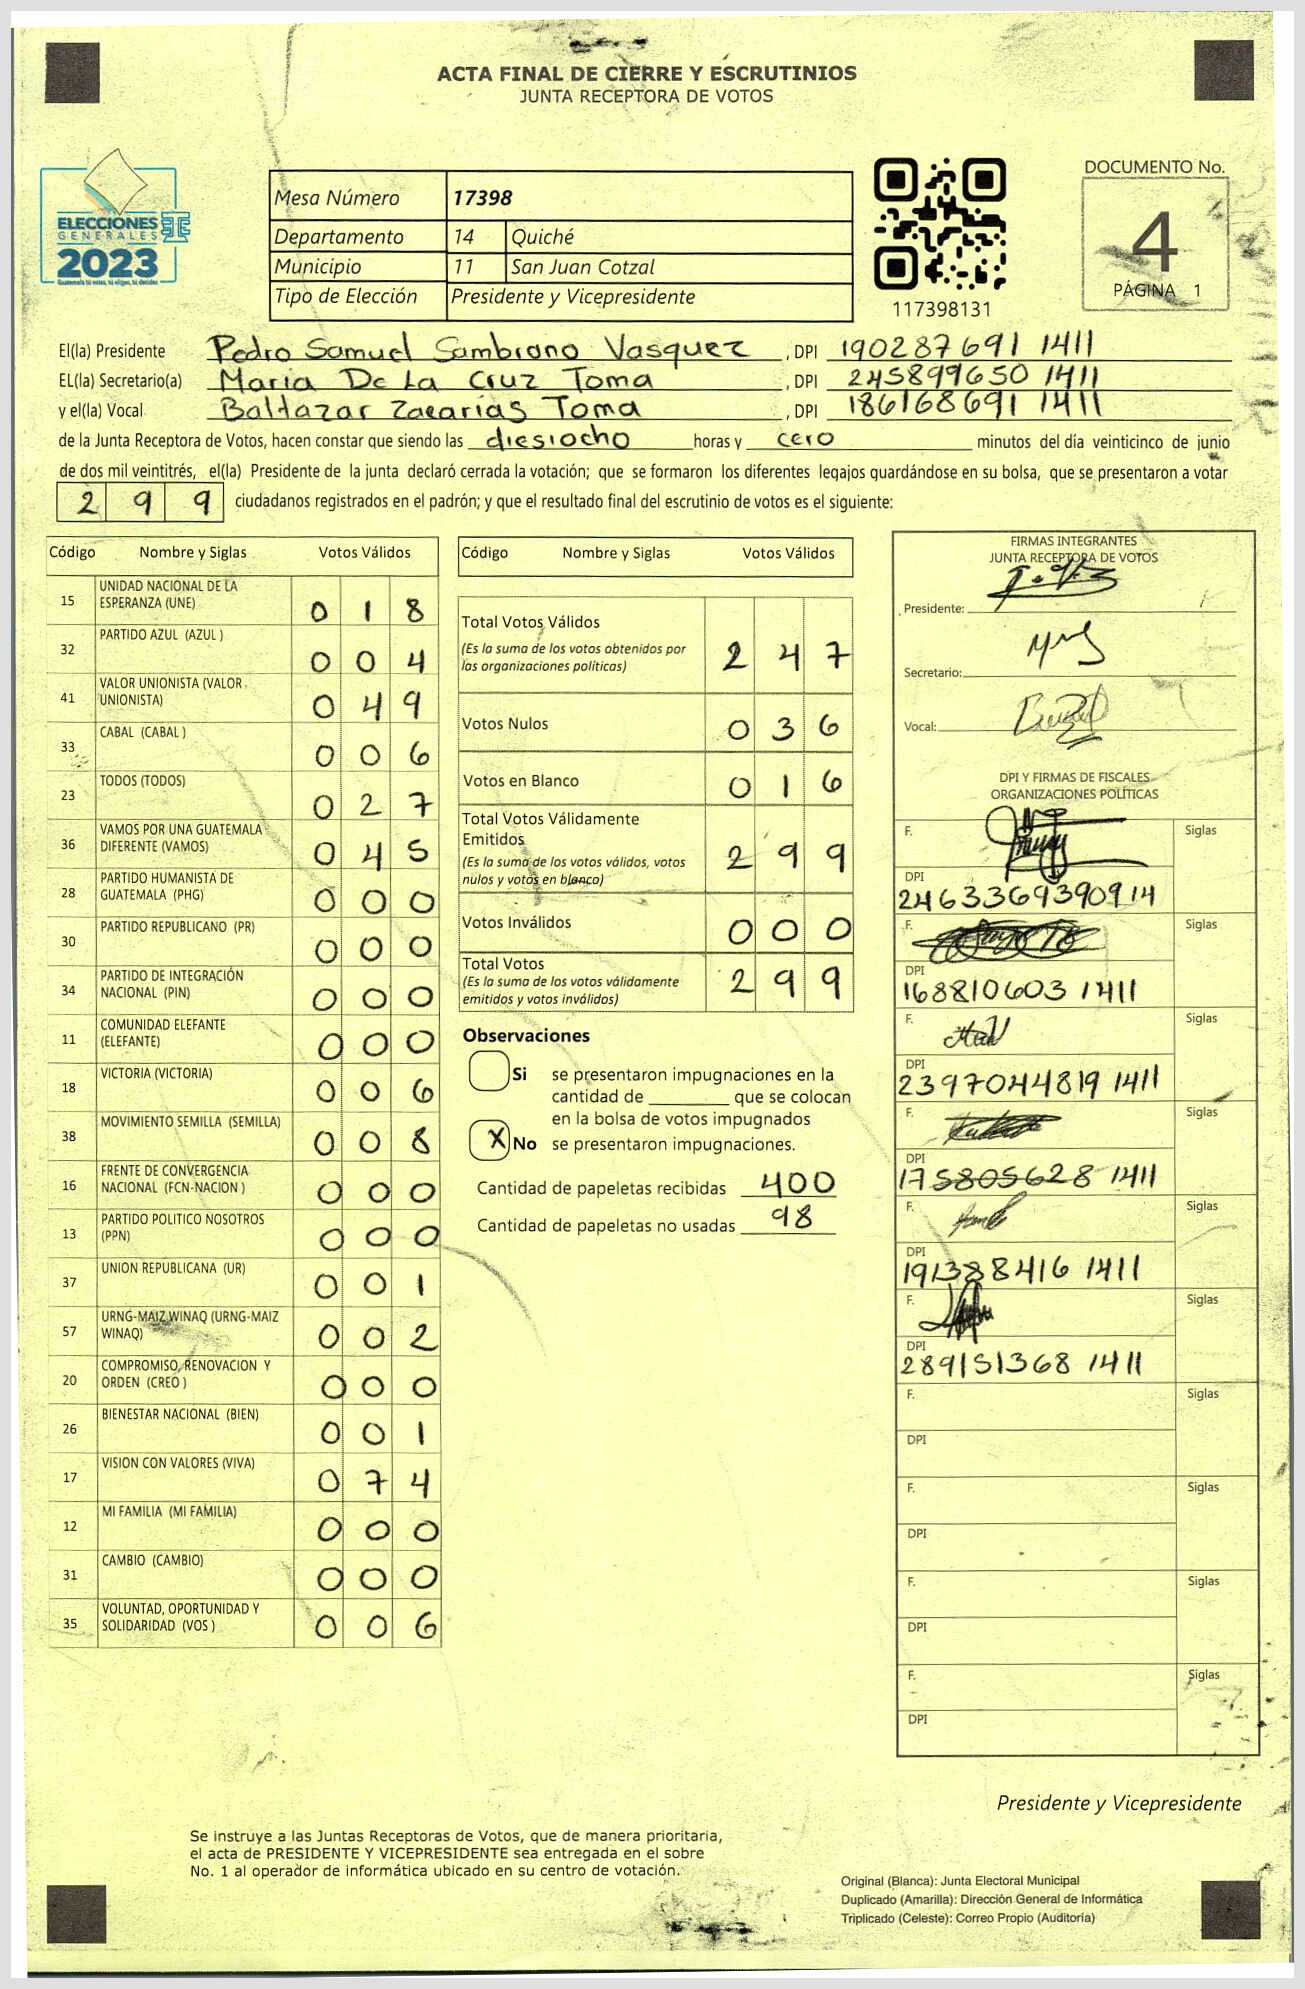 ACTA FINAL DE CIERRE Y ESCRUTINIOS
JUNTA RECEPTORA DE VOTOS
ELECCIONES
GENERALES
2023
Guatemala tú votas, tú eliges, tú decides
Mesa Número 17398
Departamento 14 Quiché
Municipio 11 San Juan Cotzal
Tipo de Elección Presidente y Vicepresidente
117398131
DOCUMENTO No.
4
PÁGINA 1
El(la) Presidente Pedro Samuel Sambrano Vasquez , DPI 190287691 1411
EL(la) Secretario(a) Maria De La Cruz Toma , DPI 245899650 1411
y el(la) Vocal Baltazar Zacarias Toma , DPI 186168691 1411
de la Junta Receptora de Votos, hacen constar que siendo las diesiocho horas y cero minutos del día veinticinco de junio
de dos mil veintitrés, el(la) Presidente de la junta declaró cerrada la votación; que se formaron los diferentes legajos guardándose en su bolsa, que se presentaron a votar
2 9 9 ciudadanos registrados en el padrón; y que el resultado final del escrutinio de votos es el siguiente:
Código Nombre y Siglas Votos Válidos
15 UNIDAD NACIONAL DE LA
ESPERANZA (UNE) 0 1 8
32 PARTIDO AZUL (AZUL ) 0 0 4
41 VALOR UNIONISTA (VALOR
UNIONISTA) 0 4 9
33 CABAL (CABAL ) 0 0 6
23 TODOS (TODOS) 0 2 7
36 VAMOS POR UNA GUATEMALA
DIFERENTE (VAMOS) 0 4 5
28 PARTIDO HUMANISTA DE
GUATEMALA (PHG) 0 0 0
30 PARTIDO REPUBLICANO (PR) 0 0 0
34 PARTIDO DE INTEGRACIÓN
NACIONAL (PIN) 0 0 0
11 COMUNIDAD ELEFANTE
(ELEFANTE) 0 0 0
18 VICTORIA (VICTORIA) 0 0 6
38 MOVIMIENTO SEMILLA (SEMILLA) 0 0 8
16 FRENTE DE CONVERGENCIA
NACIONAL (FCN-NACION ) 0 0 0
13 PARTIDO POLITICO NOSOTROS
(PPN) 0 0 0
37 UNION REPUBLICANA (UR) 0 0 1
57 URNG-MAIZ WINAQ (URNG-MAIZ
WINAQ) 0 0 2
20 COMPROMISO, RENOVACION Y
ORDEN (CREO ) 0 0 0
26 BIENESTAR NACIONAL (BIEN) 0 0 1
17 VISION CON VALORES (VIVA) 0 7 4
12 MI FAMILIA (MI FAMILIA) 0 0 0
31 CAMBIO (CAMBIO) 0 0 0
35 VOLUNTAD, OPORTUNIDAD Y
SOLIDARIDAD (VOS ) 0 0 6
Código Nombre y Siglas Votos Válidos
Total Votos Válidos
(Es la suma de los votos obtenidos por
las organizaciones políticas) 2 4 7
Votos Nulos 0 3 6
Votos en Blanco 0 1 6
Total Votos Válidamente
Emitidos
(Es la suma de los votos válidos, votos
nulos y votos en blanco) 2 9 9
Votos Inválidos 0 0 0
Total Votos
(Es la suma de los votos válidamente
emitidos y votos inválidos) 2 9 9
Observaciones
Si se presentaron impugnaciones en la
cantidad de ________ que se colocan
en la bolsa de votos impugnados
X No se presentaron impugnaciones.
Cantidad de papeletas recibidas 400
Cantidad de papeletas no usadas 98
FIRMAS INTEGRANTES
JUNTA RECEPTORA DE VOTOS
Presidente:
Secretario:
Vocal:
DPI Y FIRMAS DE FISCALES
ORGANIZACIONES POLÍTICAS
F. Siglas
DPI
2463369390914
F. Siglas
DPI
168810603 1411
F. Siglas
DPI
239704819 1411
F. Siglas
DPI
175805628 1411
F. Siglas
DPI
191388416 1411
F. Siglas
DPI
289151368 1411
F. Siglas
DPI
F. Siglas
DPI
F. Siglas
DPI
F. Siglas
DPI
Presidente y Vicepresidente
Se instruye a las Juntas Receptoras de Votos, que de manera prioritaria,
el acta de PRESIDENTE Y VICEPRESIDENTE sea entregada en el sobre
No. 1 al operador de informática ubicado en su centro de votación.
Original (Blanca): Junta Electoral Municipal
Duplicado (Amarilla): Dirección General de Informática
Triplicado (Celeste): Correo Propio (Auditoría)